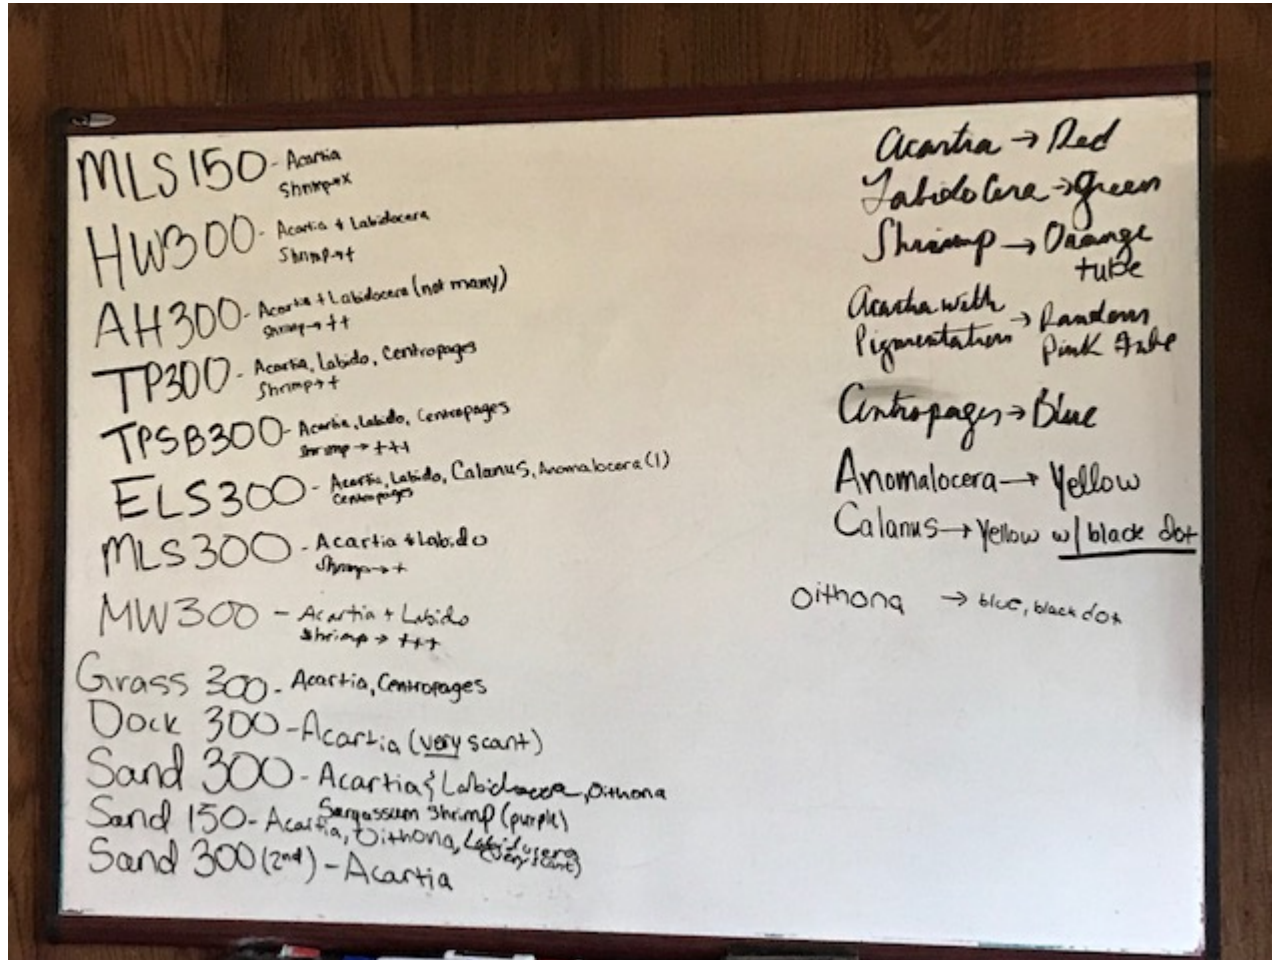 MLS150 - Acartia
Shrimp→x
HW300 - Acartia + Labidocera
Shrimp→+
AH300 - Acartia + Labidocera (not many)
Shrimp→ ++
TP300 - Acartia, Labido, Centropages
Shrimp→+
TPSB300 - Acartia, Labido, Centropages
Shrimp → +++
ELS300 - Acartia, Labido, Calanus, Anomalocera (1)
Centropages
MLS300 - Acartia + Labido
Shrimp→+
MW300 - Acartia + Labido
Shrimp → +++
Grass 300 - Acartia, Centropages
Dock 300 - Acartia (very scant)
Sand 300 - Acartia & Labidocera, Oithona
Sargassum Shrimp (purple)
Sand 150 - Acartia, Oithona, Labidocera
(very scant)
Sand 300 (2nd) - Acartia
Acartia → Red
Labidocera → green
Shrimp → Orange
tube
Acartia with
Pigmentation → Random
Pink tube
Centropages → Blue
Anomalocera → Yellow
Calanus → Yellow w/ black dot
Oithona → blue, black dot